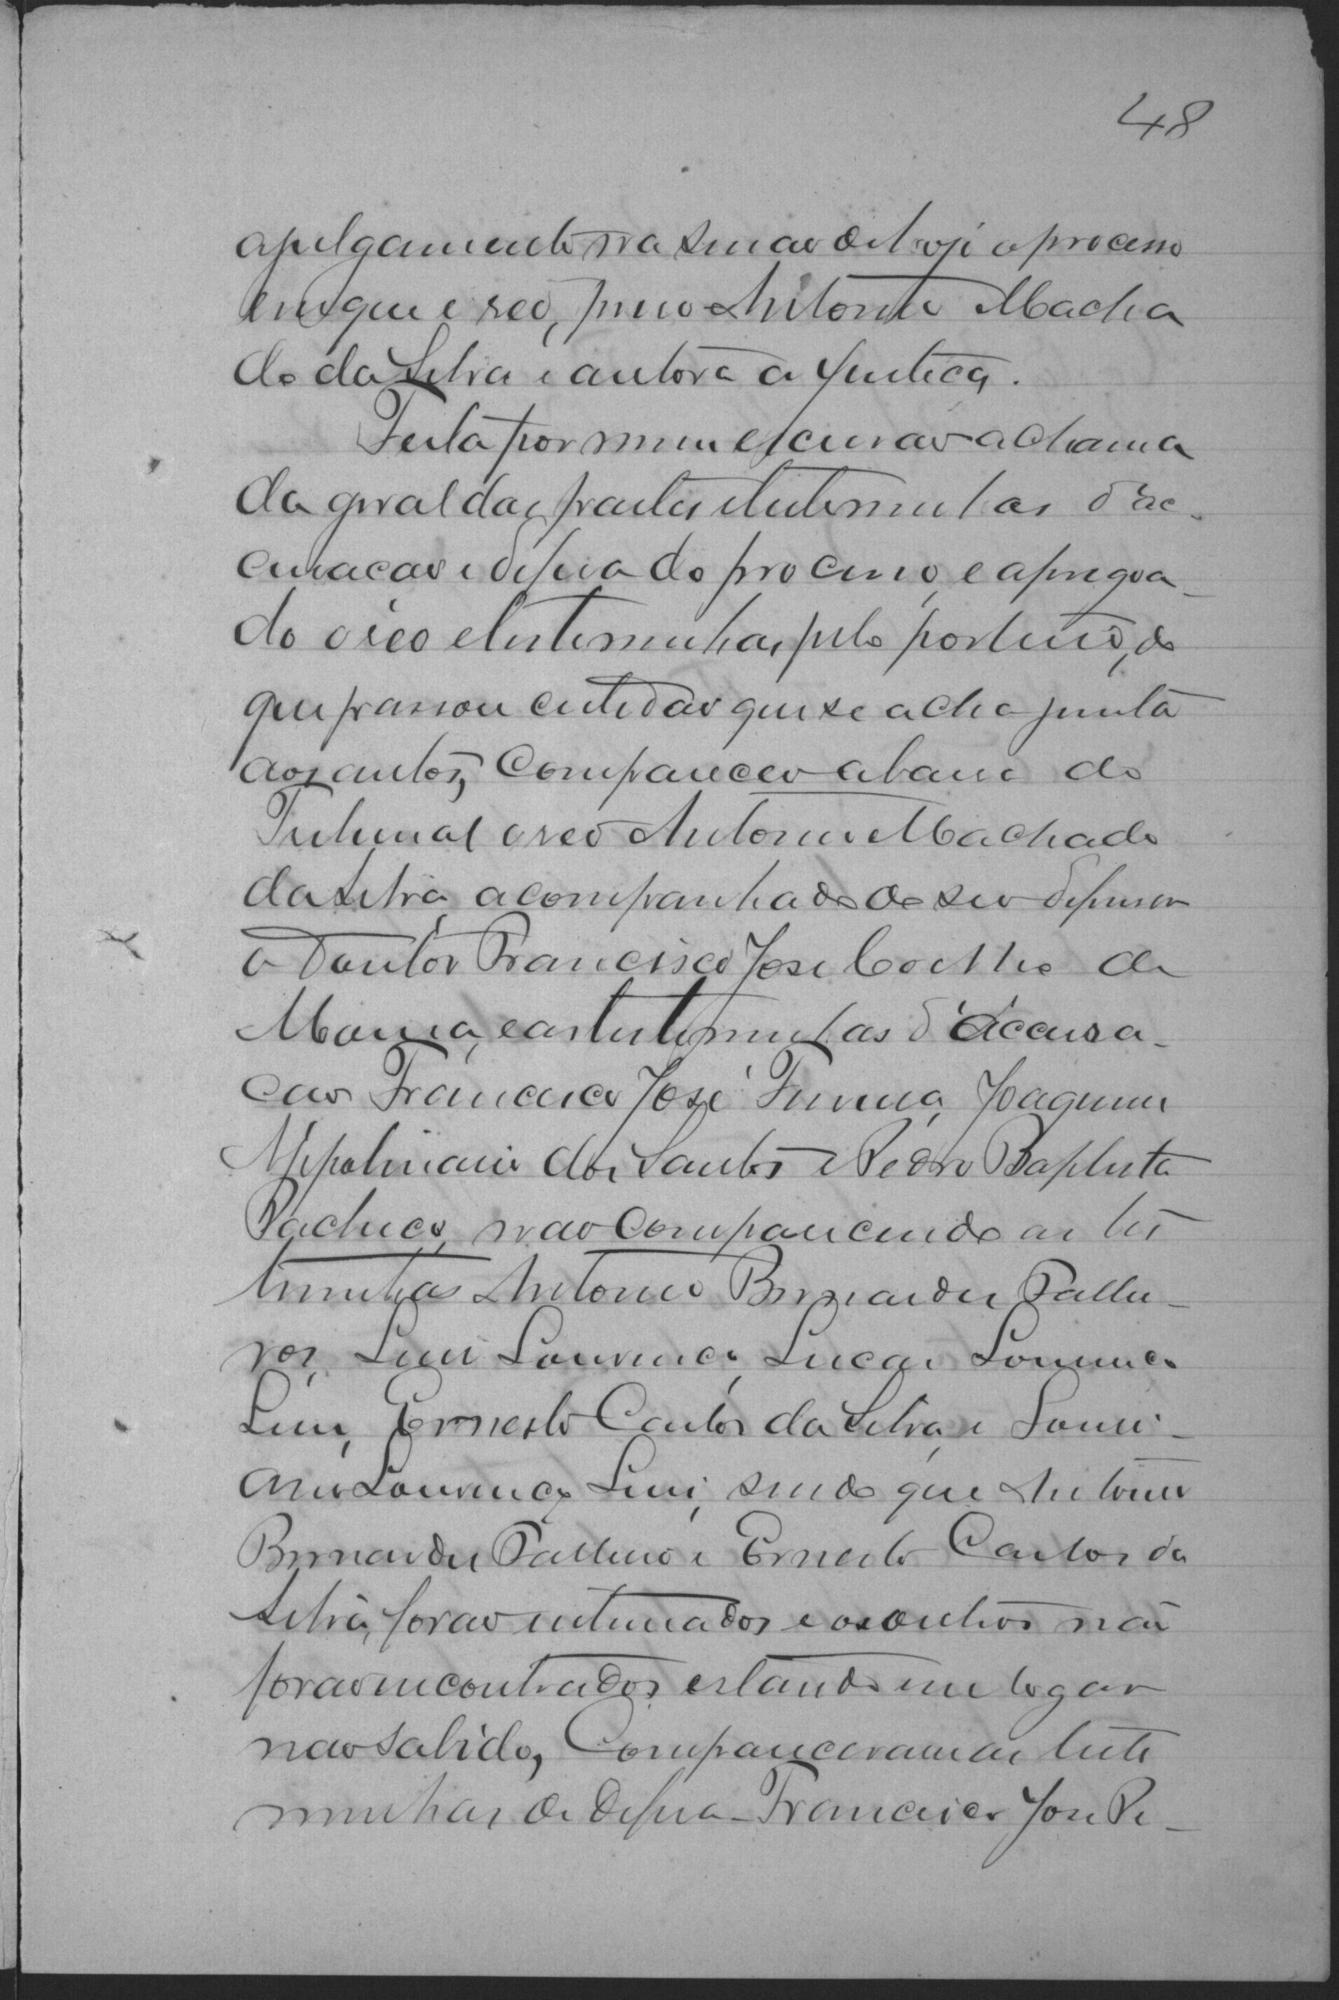 48
a julgamento na sessão de hoje o processo
em que é reo, preso Antonio Macha
do da Silva e autora a Justiça.
Feita por mim escrivão a chama
da geral das partes e testemunhas d'ac-
cusação e defesa do processo, e apregoa-
do o reo e testemunhas pelo porteiro, do
que passou certidão que se acha junta
aos autos, Compareceo a barra do
Tribunal o reo Antonio Machado
da Silva, acompanhado de seo defensor
o Doutor Francisco José Coelho de
Moura, e as testemunhas d'accusa-
ção Francisco José Ferreira, Joaquim
Appolinario dos Santos e Pedro Baptista
Pacheco, não comparecendo as tes
temunhas Antonio Bernardes Palhe-
ros, Luis Lourenço, Lucas Lourenço
Luis, Ernesto Carlos da Silva, e
ano Lourenço Luis, sendo que Antonio
Bernardes Palheiro e Ernesto Carlos da
Silva, forão intimados e os outros não
forão incontrados estando em logar
não sabido, Compareceram as teste
munhas de defesa - Francisco José Pe-